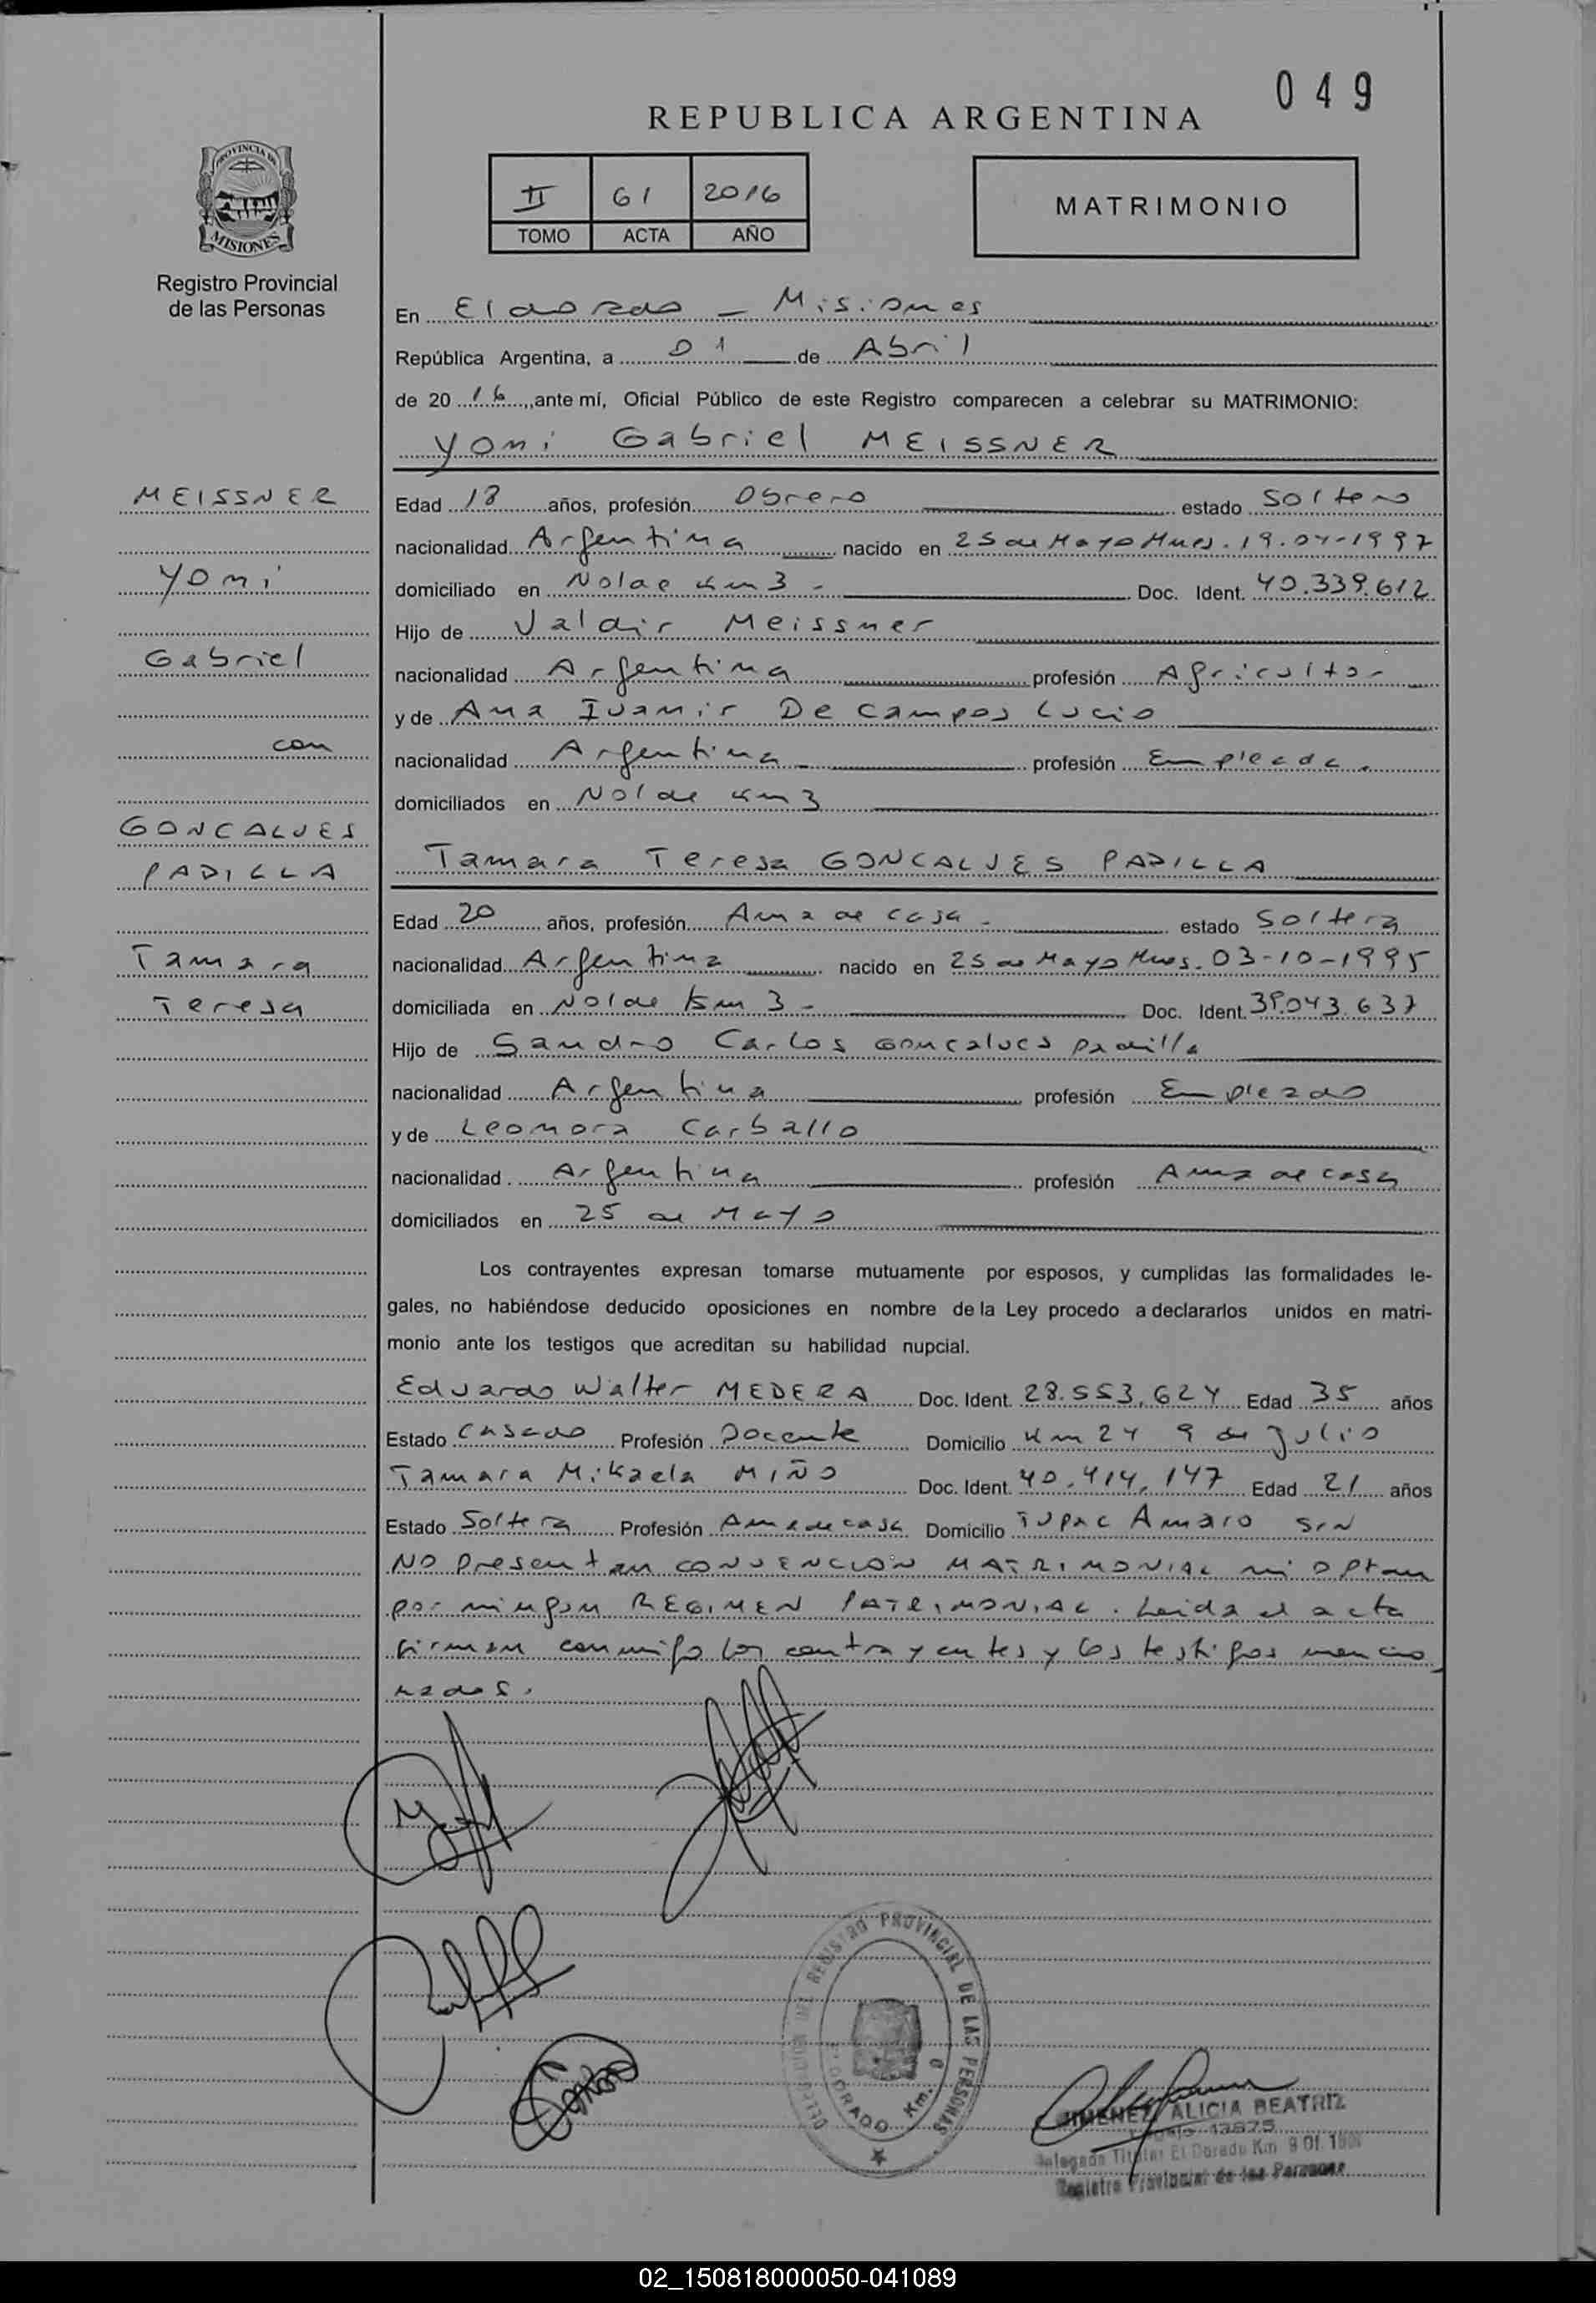 049
REPUBLICA ARGENTINA
PROVINCIA DE
MISIONES
Registro Provincial
de las Personas
II 61 2016
TOMO ACTA AÑO
MATRIMONIO
En Eldorado - Misiones
República Argentina, a 01 de Abril
de 20 16, ante mí, Oficial Público de este Registro comparecen a celebrar su MATRIMONIO:
Yoni Gabriel MEISSNER
MEISSNER
Yoni
Gabriel
con
GONCALVES
PADILLA
Tamara
Teresa
Edad 18 años, profesión Obrero estado Soltero
nacionalidad Argentina nacido en 25 de Mayo Mnes. 19-04-1997
domiciliado en Nolde km 3 - Doc. Ident. 40.339.612
Hijo de Valdir Meissner
nacionalidad Argentina profesión Agricultor
y de Ana Ivanir De Campos Lucio
nacionalidad Argentina - profesión Empleada.
domiciliados en Nolde km 3
Tamara Teresa GONCALVES PADILLA
Edad 20 años, profesión Ama de casa - estado Soltera
nacionalidad Argentina nacido en 25 de Mayo Mnes. 03-10-1995
domiciliada en Nolde km 3 - Doc. Ident. 39.043.637
Hijo de Sandro Carlos Goncalves Padilla
nacionalidad Argentina profesión Empleado
y de Leonora Carballo
nacionalidad Argentina profesión Ama de casa
domiciliados en 25 de Mayo
Los contrayentes expresan tomarse mutuamente por esposos, y cumplidas las formalidades le-
gales, no habiéndose deducido oposiciones en nombre de la Ley procedo a declararlos unidos en matri-
monio ante los testigos que acreditan su habilidad nupcial.
Eduardo Walter MEDERA Doc. Ident. 28.553.624 Edad 35 años
Estado Casado Profesión Docente Domicilio Km 24 9 de Julio
Tamara Mikaela MIÑO Doc. Ident. 40.414.147 Edad 21 años
Estado Soltera Profesión Ama de casa Domicilio Tupac Amaro S/N
No presentan CONVENCION MATRIMONIAL ni optan
por ningun REGIMEN PATRIMONIAL. Leida el acta
firman conmigo los contrayentes y los testigos mencio
nados.
DELEGACION DEL REGISTRO PROVINCIAL DE LAS PERSONAS
DORADO Km.
JIMENEZ ALICIA BEATRIZ
Delegada Titular El Dorado Km 9 Of.
Registro Provincial de las Personas
02_150818000050-041089